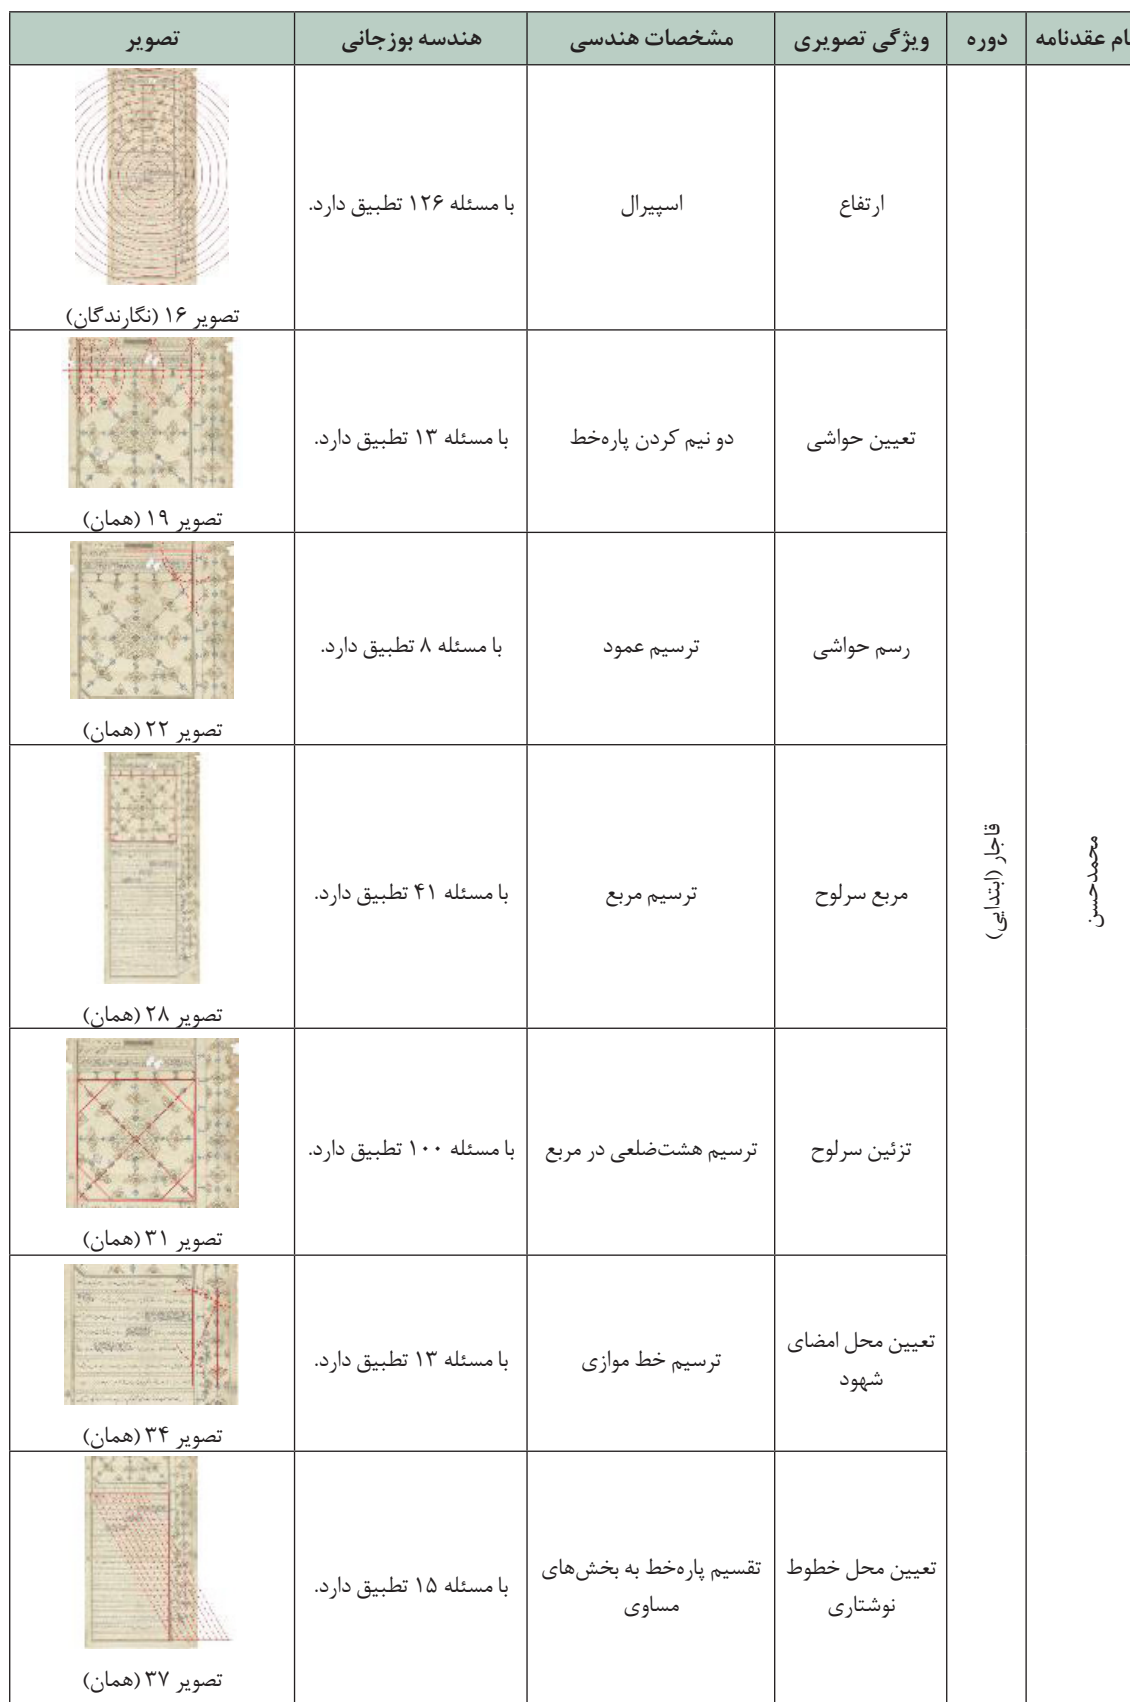 ام عقدنامه	دوره	ویژگی تصویری	مشخصات هندسی	هندسه بوزجانی	تصویر
محمدحسن
قاجار (ابتدایی)
ارتفاع	اسپیرال	با مسئله ۱۲۶ تطبیق دارد.
تصویر ۱۶ (نگارندگان)
تعیین حواشی	دو نیم کردن پاره‌خط	با مسئله ۱۳ تطبیق دارد.
تصویر ۱۹ (همان)
رسم حواشی	ترسیم عمود	با مسئله ۸ تطبیق دارد.
تصویر ۲۲ (همان)
مربع سرلوح	ترسیم مربع	با مسئله ۴۱ تطبیق دارد.
تصویر ۲۸ (همان)
تزئین سرلوح	ترسیم هشت‌ضلعی در مربع	با مسئله ۱۰۰ تطبیق دارد.
تصویر ۳۱ (همان)
تعیین محل امضای
شهود
ترسیم خط موازی	با مسئله ۱۳ تطبیق دارد.
تصویر ۳۴ (همان)
تعیین محل خطوط
نوشتاری
تقسیم پاره‌خط به بخش‌های
مساوی
با مسئله ۱۵ تطبیق دارد.
تصویر ۳۷ (همان)